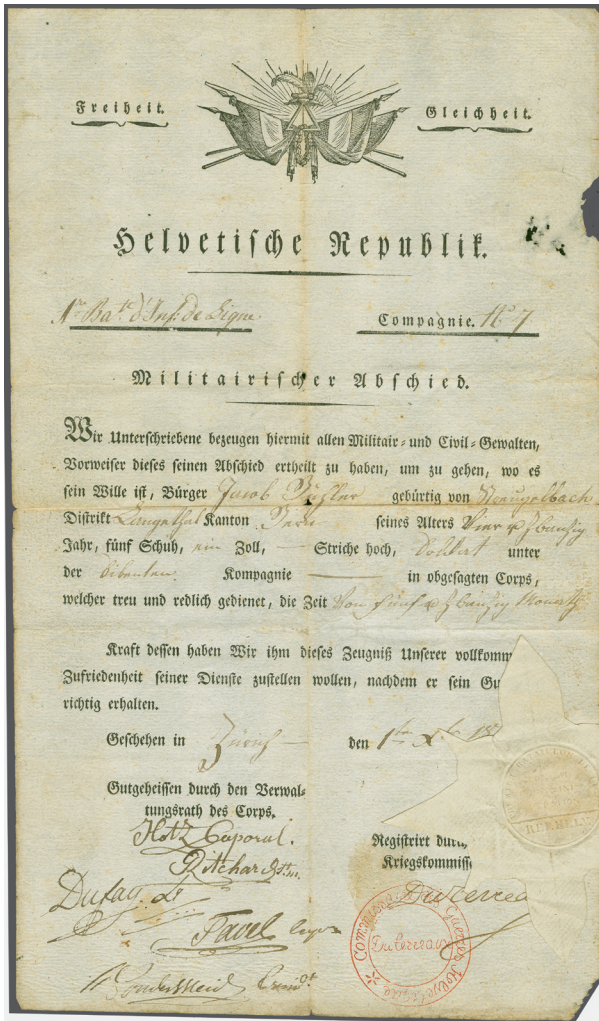 Freiheit.
Gleichheit.
Helvetische Republik.
1r Bat. d'Inf: de Ligne
Compagnie. No 7
Militairischer Abschied.
Wir Unterschriebene bezeugen hiermit allen Militair- und Civil-Gewalten,
Vorweiser dieses seinen Abschied ertheilt zu haben, um zu gehen, wo es
sein Wille ist, Bürger Jacob gebürtig von
Distrikt Langethal Kanton Bern seines Alters Vier u Zwanzig
Jahr, fünf Schuh, ein Zoll, — Striche hoch, Soldat unter
der Siebenten Kompagnie — in obgesagten Corps,
welcher treu und redlich gedienet, die Zeit Von fünf u Zwanzig Monath
Kraft dessen haben Wir ihm dieses Zeugniß Unserer vollkomm
Zufriedenheit seiner Dienste zustellen wollen, nachdem er sein Gu
richtig erhalten.
Geschehen in Zürich — den 1ten
Gutgeheissen durch den Verwal-
tungsrath des Corps.
Hotz Caporal.
Registrirt durch
Kriegskommiss
Ritchard
Dufay Lt
Favel
Duterreau